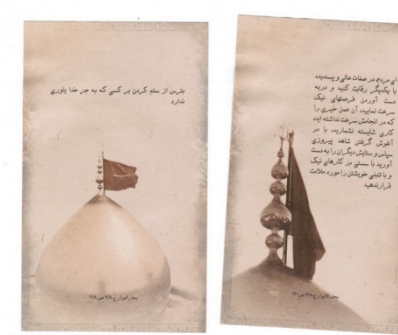 بترس از ستم کردن بر کسی که به جز خدا یاوری
ندارد
ای مردم، در صفات عالی و پسندیده
با یکدیگر رقابت کنید و در به
دست آوردن فرصتهای نیک
سرعت نمایید، آن عمل خیری را
که در انجامش سرعت نداشته اید،
کاری شایسته نشمارید، با در
آغوش گرفتن شاهد پیروزی
سپاس و ستایش دیگران را به دست
آورید با سستی در کارهای نیک
و با تنبلی خویشتن را مورد ملامت
قرار ندهید